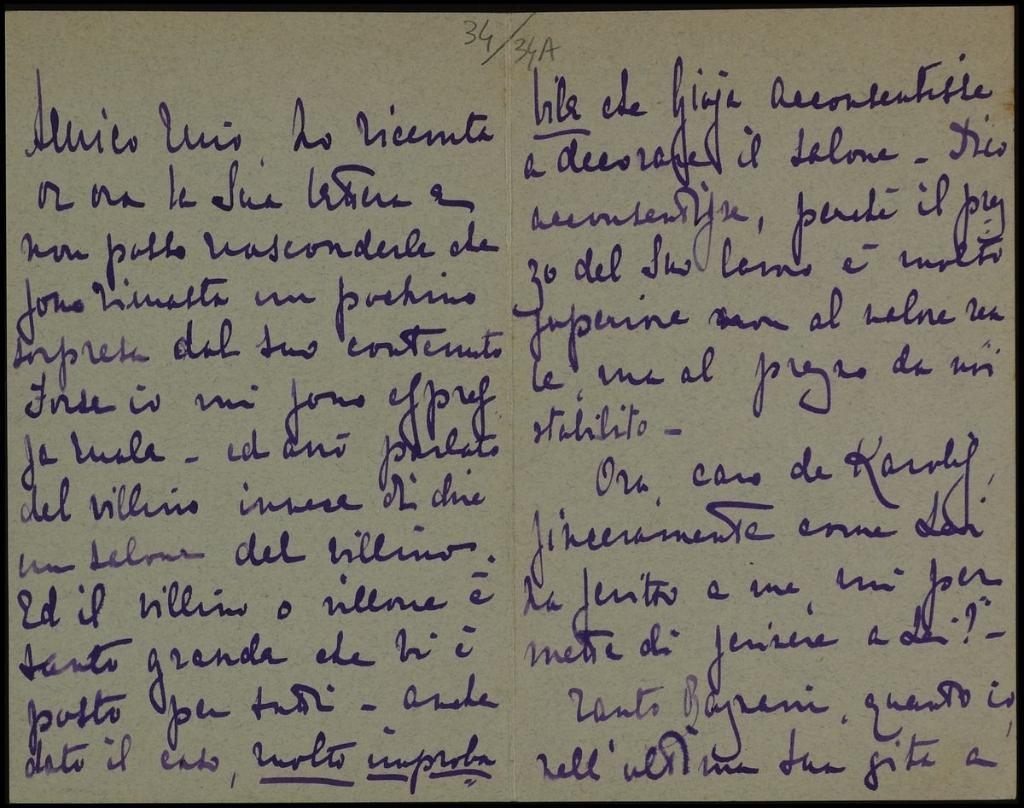 34/34A
Amico mio, ho ricevuta
or ora la Sua lettera e
non posso nasconderle che
sono rimasta un pochino
sorpresa dal suo contenuto
Forse io mi sono espres
sa male - ed avrò parlato
del villino invece di dire
un salone del villino.
Ed il villino o villone è
tanto grande che vi è
posto per tutti - anche
dato il caso, molto improba
bile che Gioja acconsentisse
a decorare il salone - Dico
acconsentisse, perché il prez
zo del Suo lavoro è molto
superiore non al valore rea
le, ma al prezzo da noi
stabilito -
Ora, caro de Karolis,
sinceramente come Lei
ha scritto a me, mi per
mette di scrivere a Lei? -
Tanto Bazzani, quanto io,
nell'ultima sua gita a